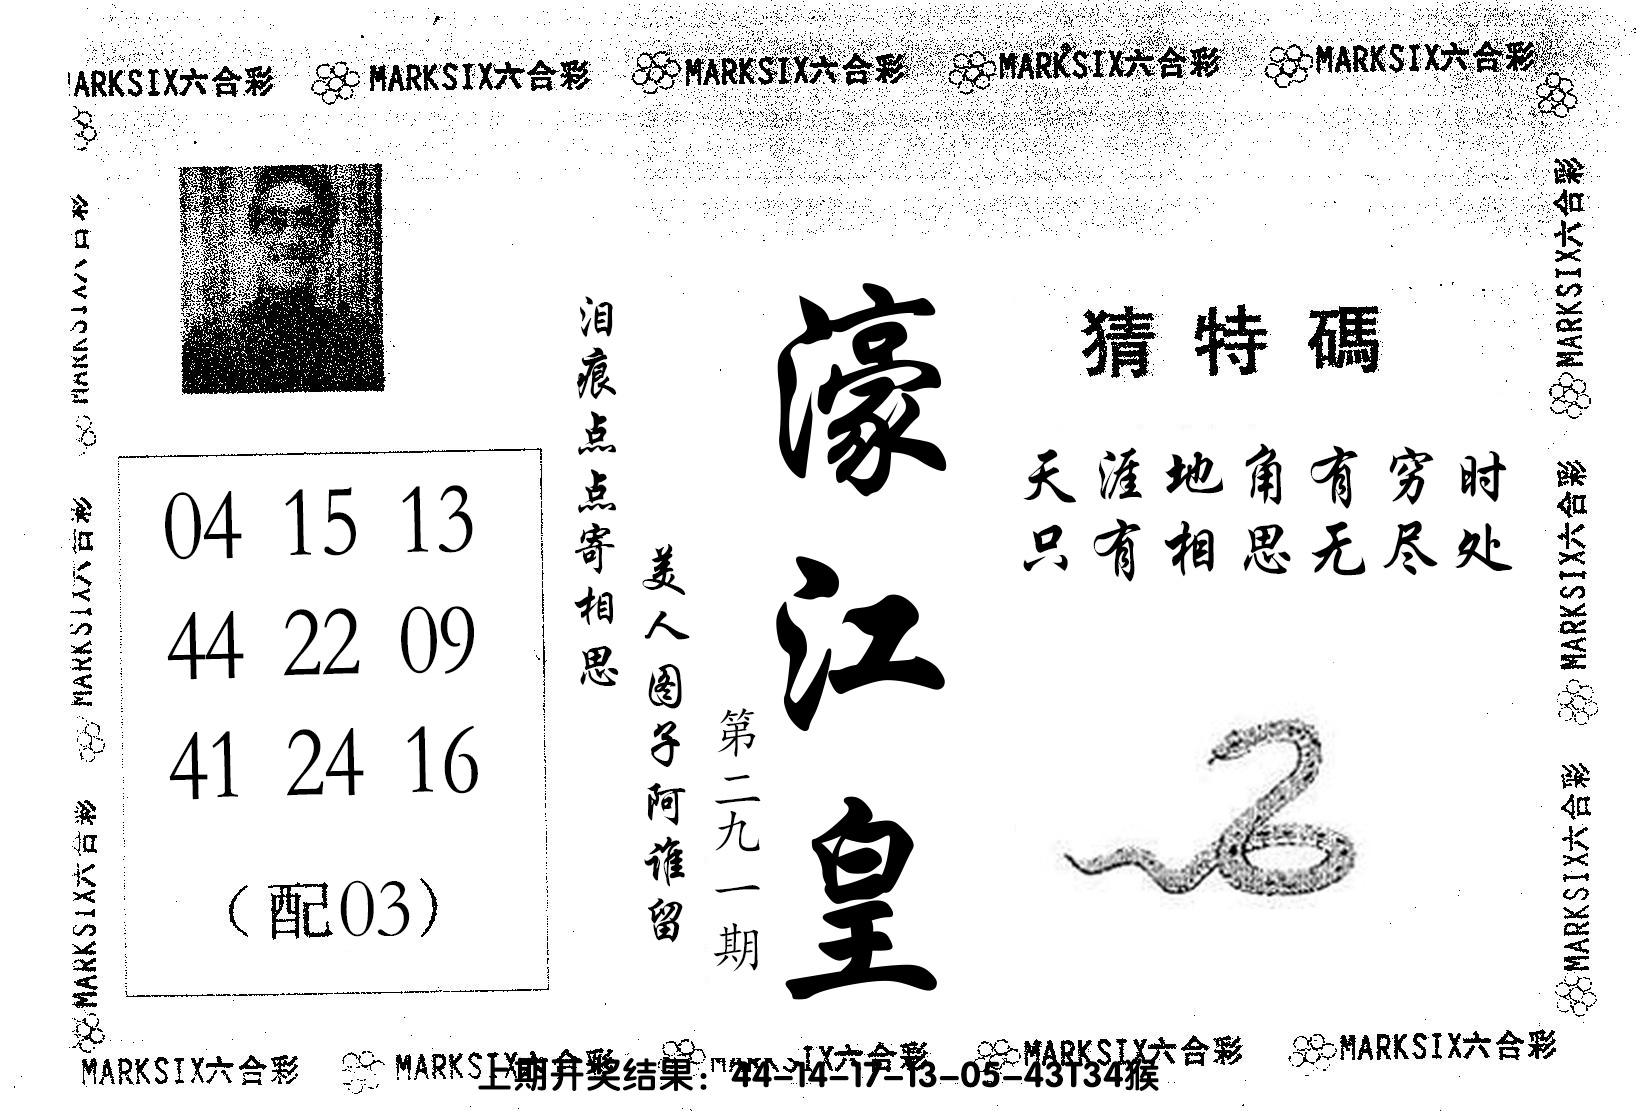 MARKSIX六合彩 MARKSIX六合彩 MARKSIX六合彩 MARKSIX六合彩
猜特碼
天涯地角有穷时
只有相思无尽处
濠江皇
第二九一期
泪痕点点寄相思
美人图子阿谁留
04 15 13
44 22 09
41 24 16
（配03）
MARKSIX六合彩
MARKSIX六合彩
MARKSIX六合彩
MARKSIX六合彩
MARKSIX六合彩
MARKSIX六合彩 MARKSIX六合彩 MARKSIX六合彩 MARKSIX六合彩
上期开奖结果：44-14-17-13-05-43T34猴